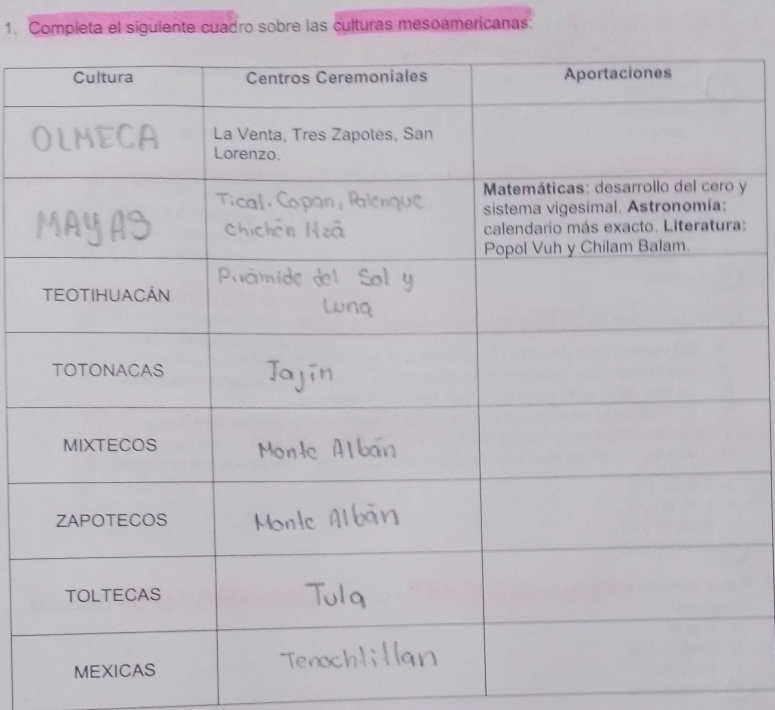 1. Completa el siguiente cuadro sobre las culturas mesoamericanas:
Cultura Centros Ceremoniales Aportaciones
OLMECA
La Venta, Tres Zapotes, San
Lorenzo.
MAYAS
Tical, Copan, Palenque
Chichén Hzá
Matemáticas: desarrollo del cero y
sistema vigesimal. Astronomía:
calendario más exacto. Literatura:
Popol Vuh y Chilam Balam.
TEOTIHUACÁN
Pirámide del Sol y
Luna
TOTONACAS Tajín
MIXTECOS Monte Albán
ZAPOTECOS Monte Albán
TOLTECAS Tula
MEXICAS Tenochtitlan